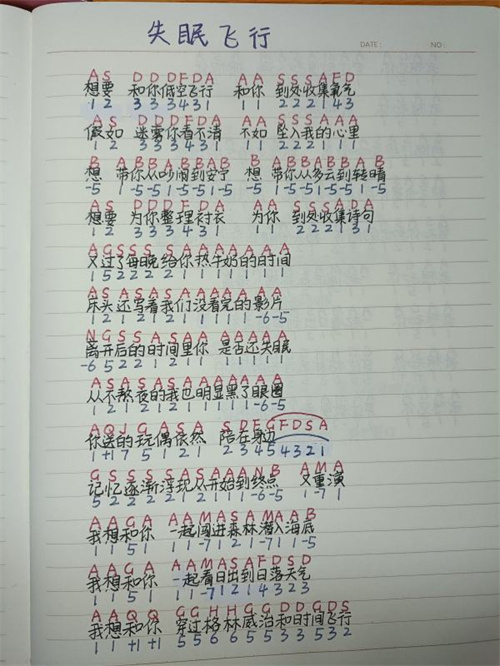 失眠飞行
DATE: NO:
A S D D D F D A A A S S S A F D
想要 和你低空飞行 和你 到处收集氧气
1 2 3 3 3 4 3 1 1 1 2 2 2 1 4 3
A S D D D F D A A A S S S A A A
假如 迷雾你看不清 不如 坠入我的心里
1 2 3 3 3 4 3 1 1 1 2 2 2 1 1 1
B A B B A B B A B B A B B A B A A A B
想 带你从吵闹到安宁 想 带你从多云到转晴
A S D D D F D A A A S S S A D A
想要 为你整理衬衣 为你 到处收集诗句
1 2 3 3 3 4 3 1 1 1 2 2 2 1 3 1
A G S S S S S A A A A A A A
又过了每晚给你热牛奶的时间
A S A S A S A A A A A A A
床头还写着我们没看完的影片
N G S S A S A A A A A A A
离开后的日时间里你 是否还失眠
A S A S A S A A A A A A A
从不熬夜的我已明显黑了眼圈
A Q J G A S A S D F G F D S A
你送的玩偶依然 陪在身边
1 +1 7 5 1 2 1 2 3 4 5 4 3 2 1
G S S S S S A S A A A N B A M A
记忆逐渐浮现从开始到终点 又重演
A A G A A A M A S A M A A B
我想和你 一起闯进森林潜入海底
1 1 5 1 1 1 -7 1 2 1 -7 1 1 -5
A A G A A A M A S A F D S D
我想和你 一起看日出到日落天气
1 1 5 1 1 1 -7 1 2 1 4 3 2 3
A A Q Q G G H H G G D D G D S
我想和你 穿过格林威治和时间飞行
1 1 +1 +1 5 5 6 6 5 5 3 3 5 3 2